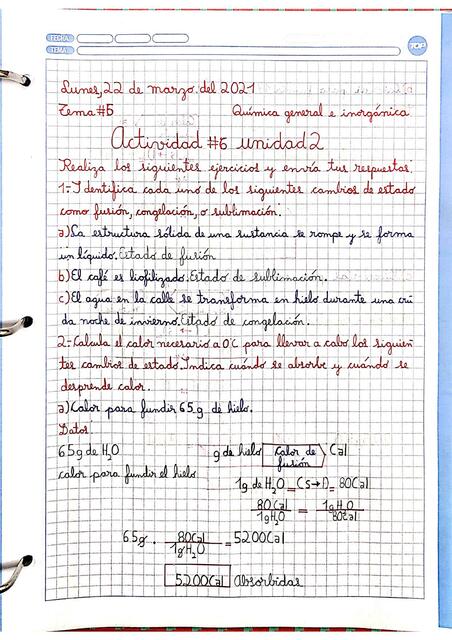 FECHA
TEMA
TOP
Lunes, 22 de marzo del 2021
Tema #5 Química general e inorgánica
Actividad #6 unidad 2
Realiza los siguientes ejercicios y envía tus respuestas.
1-Identifica cada uno de los siguientes cambios de estado
como fusión, congelación, o sublimación.
a) La estructura sólida de una sustancia se rompe y se forma
un líquido. Estado de fusión
b) El café es liofilizado. Estado de sublimación.
c) El agua en la calle se transforma en hielo durante una cru
da noche de invierno. Estado de congelación.
2-Calcula el calor necesario a 0°C para llevar a cabo los siguien
tes cambios de estado. Indica cuándo se absorbe y cuándo se
desprende calor.
a) Calor para fundir 65 g de hielo.
Datos:
65g de H2O g de hielo Calor de fusión Cal
calor para fundir el hielo
1g de H2O = (S→l) = 80Cal
80Cal / 1gH2O = 1g H2O / 80Cal
65g . 80Cal / 1g H2O = 5200Cal
5200Cal Absorbidas